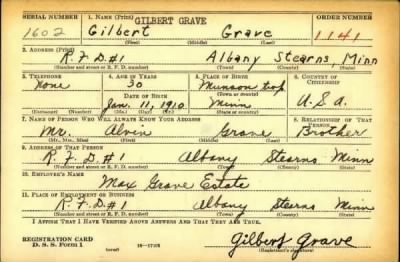 SERIAL NUMBER 1. NAME (Print) GILBERT GRAVE ORDER NUMBER
1602 Gilbert Grave 1141
(First) (Middle) (Last)
2. ADDRESS (Print)
R.F.D.#1 Albany Stearns, Minn
(Number and street or R. F. D. number) (Town) (County) (State)
3. TELEPHONE 4. AGE IN YEARS 5. PLACE OF BIRTH 6. COUNTRY OF CITIZENSHIP
None 30 Munson twp
DATE OF BIRTH
Jan. 11, 1910 Minn U.S.A.
(Exchange) (Number) (Mo.) (Day) (Yr.) (State or country)
7. NAME OF PERSON WHO WILL ALWAYS KNOW YOUR ADDRESS 8. RELATIONSHIP OF THAT PERSON
Mr. Alvin Grave Brother
(Mr., Mrs., Miss) (First) (Middle) (Last)
9. ADDRESS OF THAT PERSON
R.F.D.#1 Albany Stearns Minn
(Number and street or R. F. D. number) (Town) (County) (State)
10. EMPLOYER'S NAME
Max Grave Estate
11. PLACE OF EMPLOYMENT OR BUSINESS
Albany Stearns Minn
(Number and street or R. F. D. number) (Town) (County) (State)
I AFFIRM THAT I HAVE VERIFIED ABOVE ANSWERS AND THAT THEY ARE TRUE.
REGISTRATION CARD
D. S. S. Form 1 Gilbert Grave
(over) (Registrant's signature)